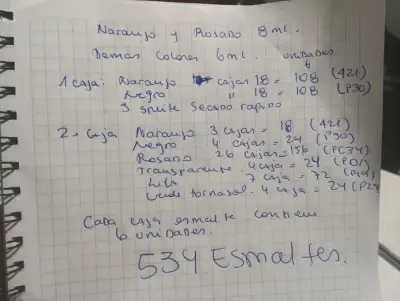 Naranjo y Rosado 8 ml.
Demas Colores 6 ml.
unidades
1 caja: Naranjo cajas 18 = 108 (421)
Negro " 18 = 108 (P30)
3 smite secado rapino
2. caja Naranjo 3 cajas = 18 (421)
Negro 4 cajas = 24 (P30)
Rosado 26 cajas = 156 (PC34)
Transparente 4 caja = 24
Lila 7 caja = 72
Verde tornasol 4 caja = 24
Cada caja esmalte contiene
6 unidades.
534 Esmaltes.